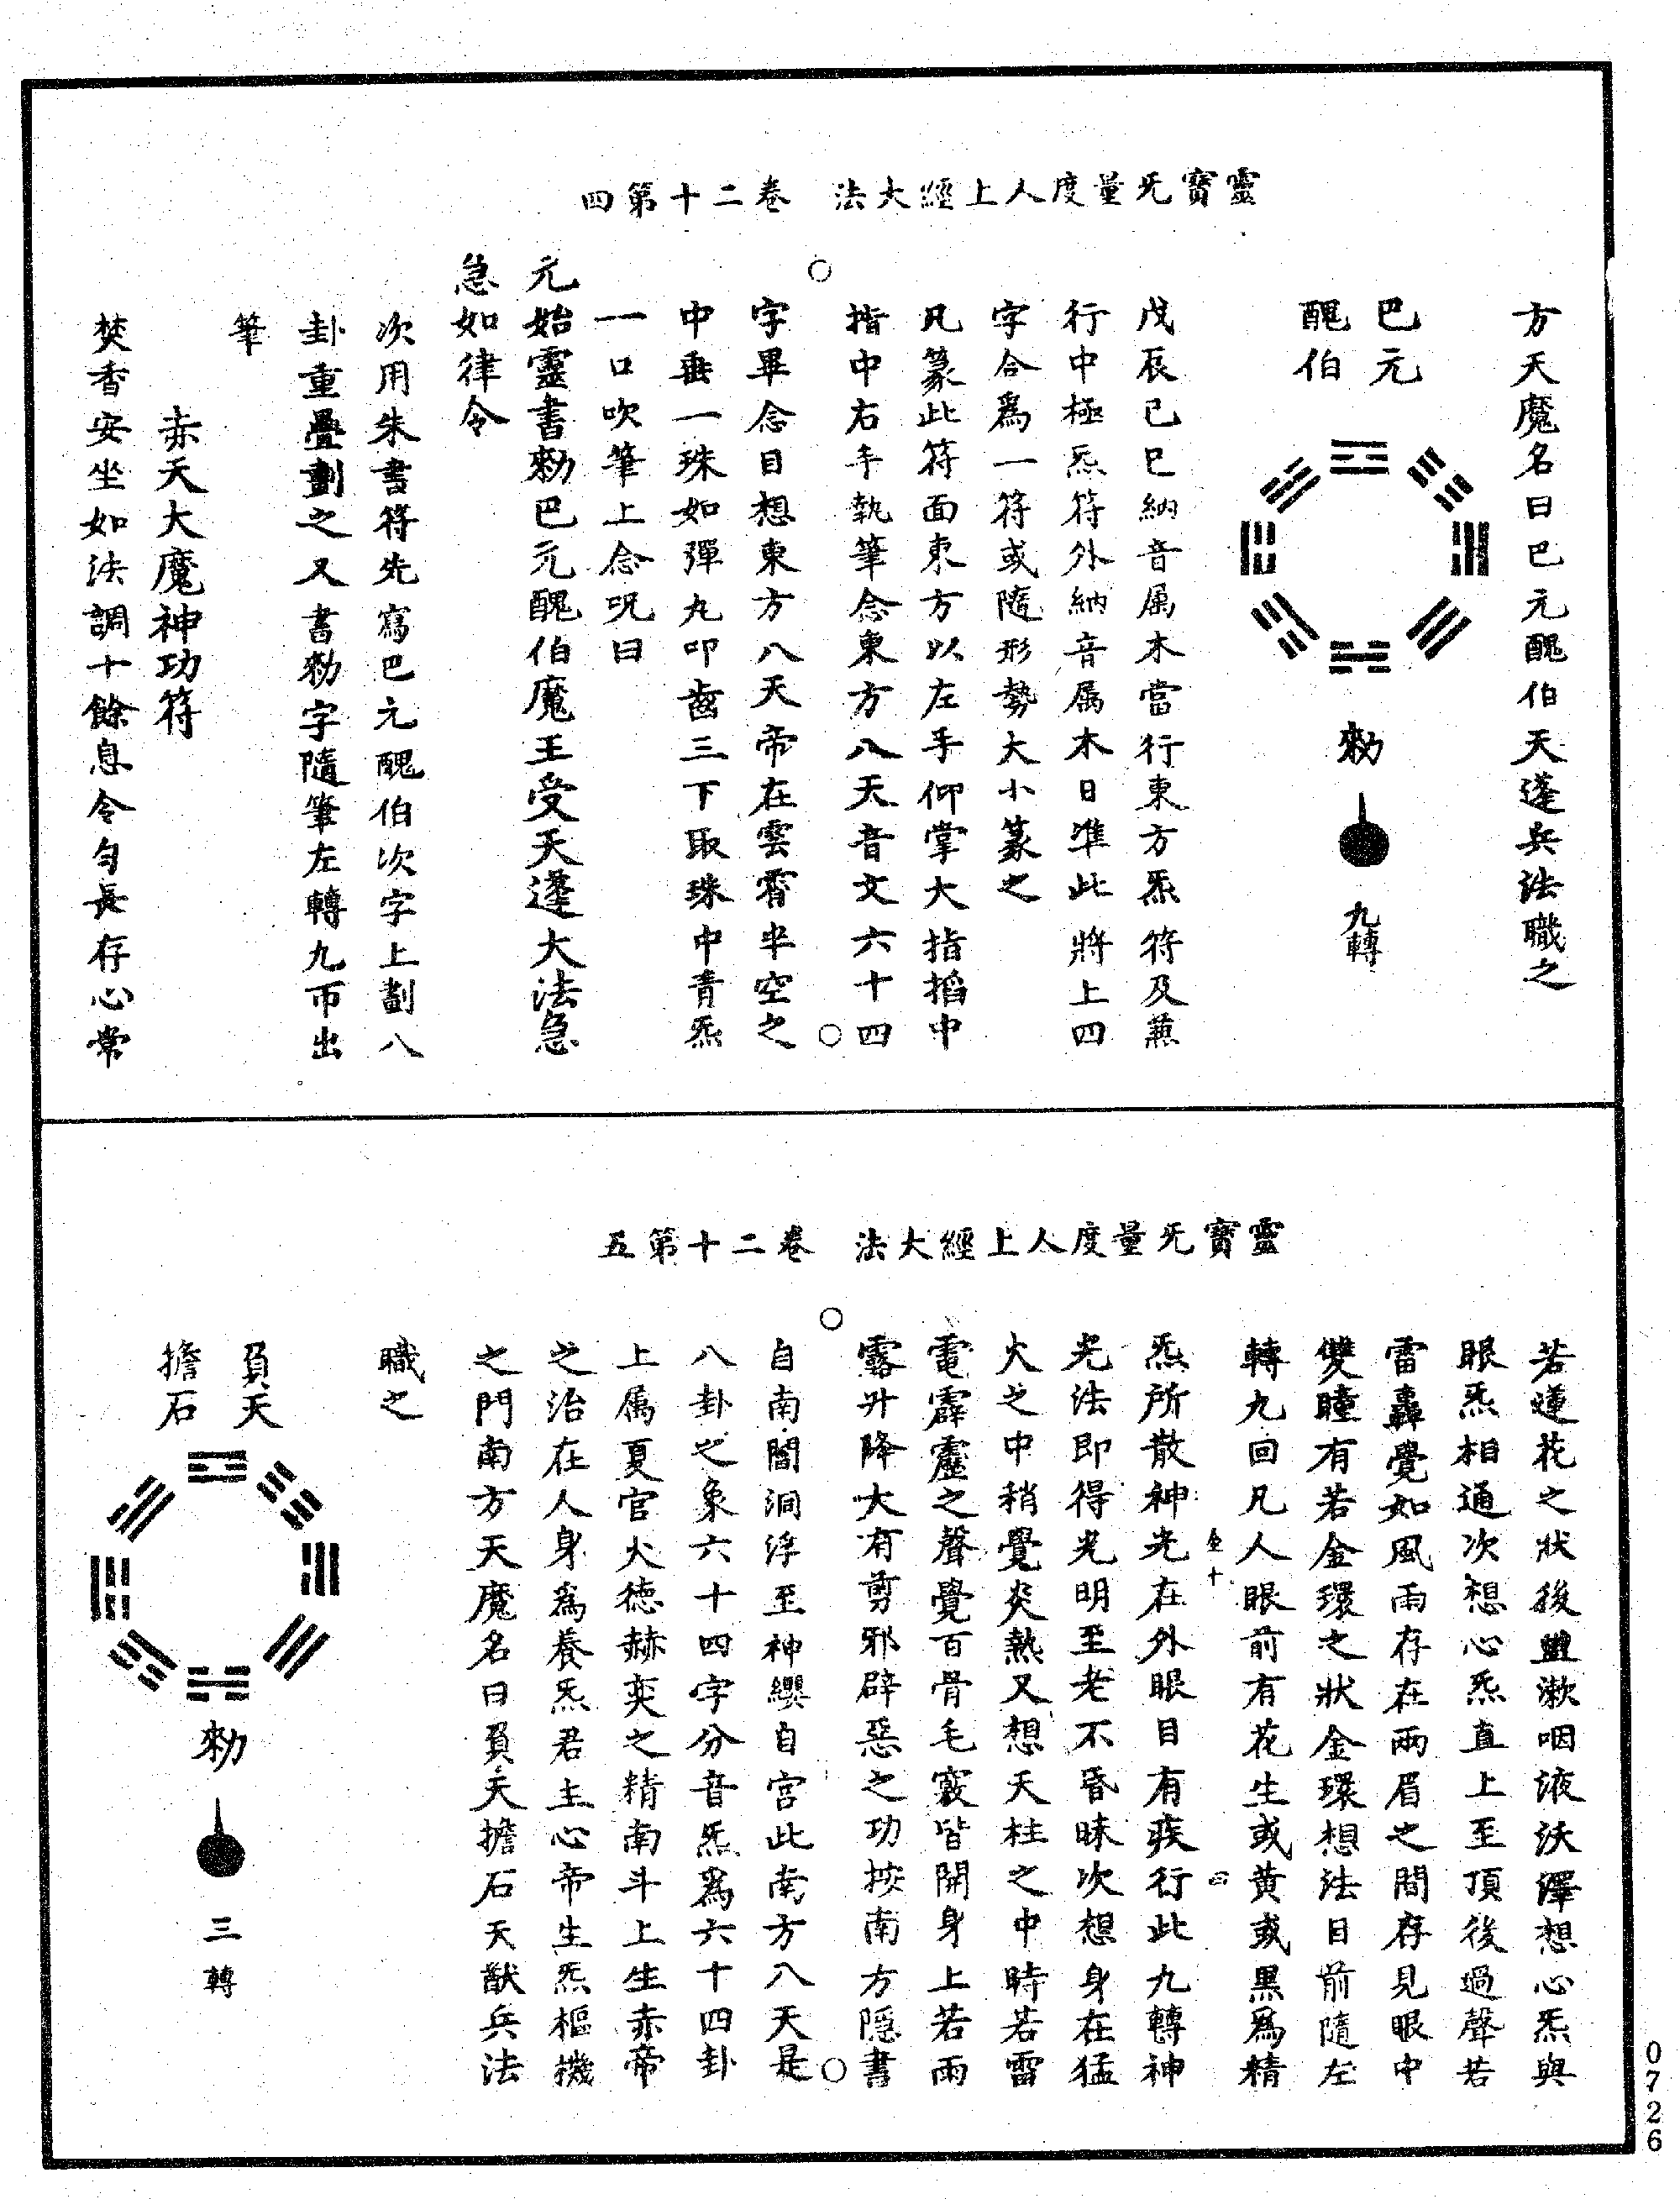 靈寶旡量度人上經大法　卷二十第四
方天魔名曰巴元醜伯天蓬兵法職之
巴元
醜伯
勑
九轉
戊辰己巳納音属木當行東方炁符及兼
行中極炁符外納音属木日準此將上四
字合爲一符或隨形勢大小篆之
凡篆此符面東方以左手仰掌大指掐中
指中右手執筆念東方八天音文六十四
字畢念目想東方八天帝在雲霄半空之
中垂一珠如彈丸叩齒三下取珠中青炁
一口吹筆上念呪曰
元始靈書勑巴元醜伯魔王受天蓬大法急
急如律令
次用朱書符先寫巴元醜伯次字上劃八
卦重疊劃之又書勑字隨筆左轉九帀出
筆
赤天大魔神功符
焚香安坐如法調十餘息令勻長存心常
靈寶旡量度人上經大法　卷二十第五
若蓮花之狀後盥漱咽液沃澤想心炁與
眼炁相通次想心炁直上至頂後過聲若
雷轟覺如風雨存在兩眉之間存見眼中
雙瞳有若金環之狀金環想法目前隨左
轉九回凡人眼前有花生或黄或黑爲精
炁所散神光在外眼目有疾行此九轉神
光法即得光明至老不昏昧次想身在猛
火之中稍覺炎熱又想天柱之中時若雷
電霹靂之聲覺百骨毛竅皆開身上若雨
露升降大有剪邪辟惡之功按南方隱書
自南閻洞浮至神纓自宮此南方八天是
八卦之象六十四字分音炁爲六十四卦
上属夏官火德赫奕之精南斗上生赤帝
之治在人身爲養炁君主心帝生炁樞機
之門南方天魔名曰負天擔石天猷兵法
職之
負天
擔石
勑
三轉
0726